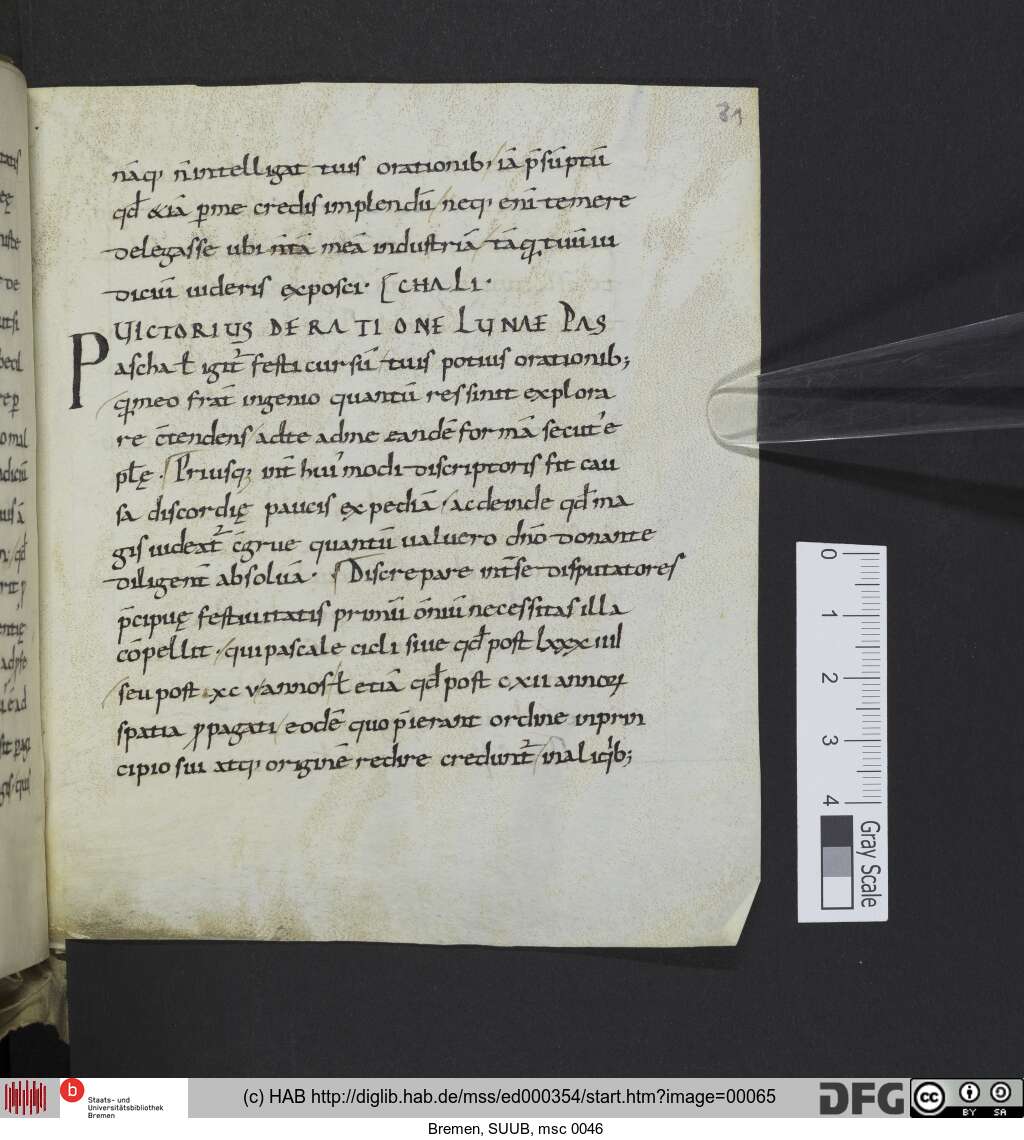 31
nāq; n̄intelligat tuis orationib; iā p̄sūptū
qđ &iā ꝑme credis implendū neq; enī temere
delegasse ubi nītā meā industriā tāqˌtuūiu
diciū uideris exposci· [CHALI·
UICTORIUS DE RATIONE LUNAE PAS
P
aschał igit᷑ festi cursū tuis potius orationib;
qˌmeo frat̄ ingenio quantū res sinit explora
re c̄tendens adte adme eandē formā secut'e
płę· Priusq; init̄ hui'modi discriptoris fit cau
sa discordię paucis expediā ac deinde qđ ma
gis uideat᷑ c̄grue quantū ualuero dn̄o donante
diligent̄ absoluā· Discrepare int̄se disputatores
p̄cipuę festiuitatis primū ōniū necessitas illa
cōpellit· qui pascale cicli siue qđ post lxxxiiii
seu post xcv annos ł etiā qđ post cxii annoꝝ
spatia ꝓpagati eodē quo p̄ierant ordine inprin
cipio sui atq; originē redire credunt᷑ inaliqˈb;
0 1 2 3 4
Gray Scale
b
Staats- und
Universitätsbibliothek
Bremen
(c) HAB http://diglib.hab.de/mss/ed000354/start.htm?image=00065
DFG
cc BY SA
Bremen, SUUB, msc 0046